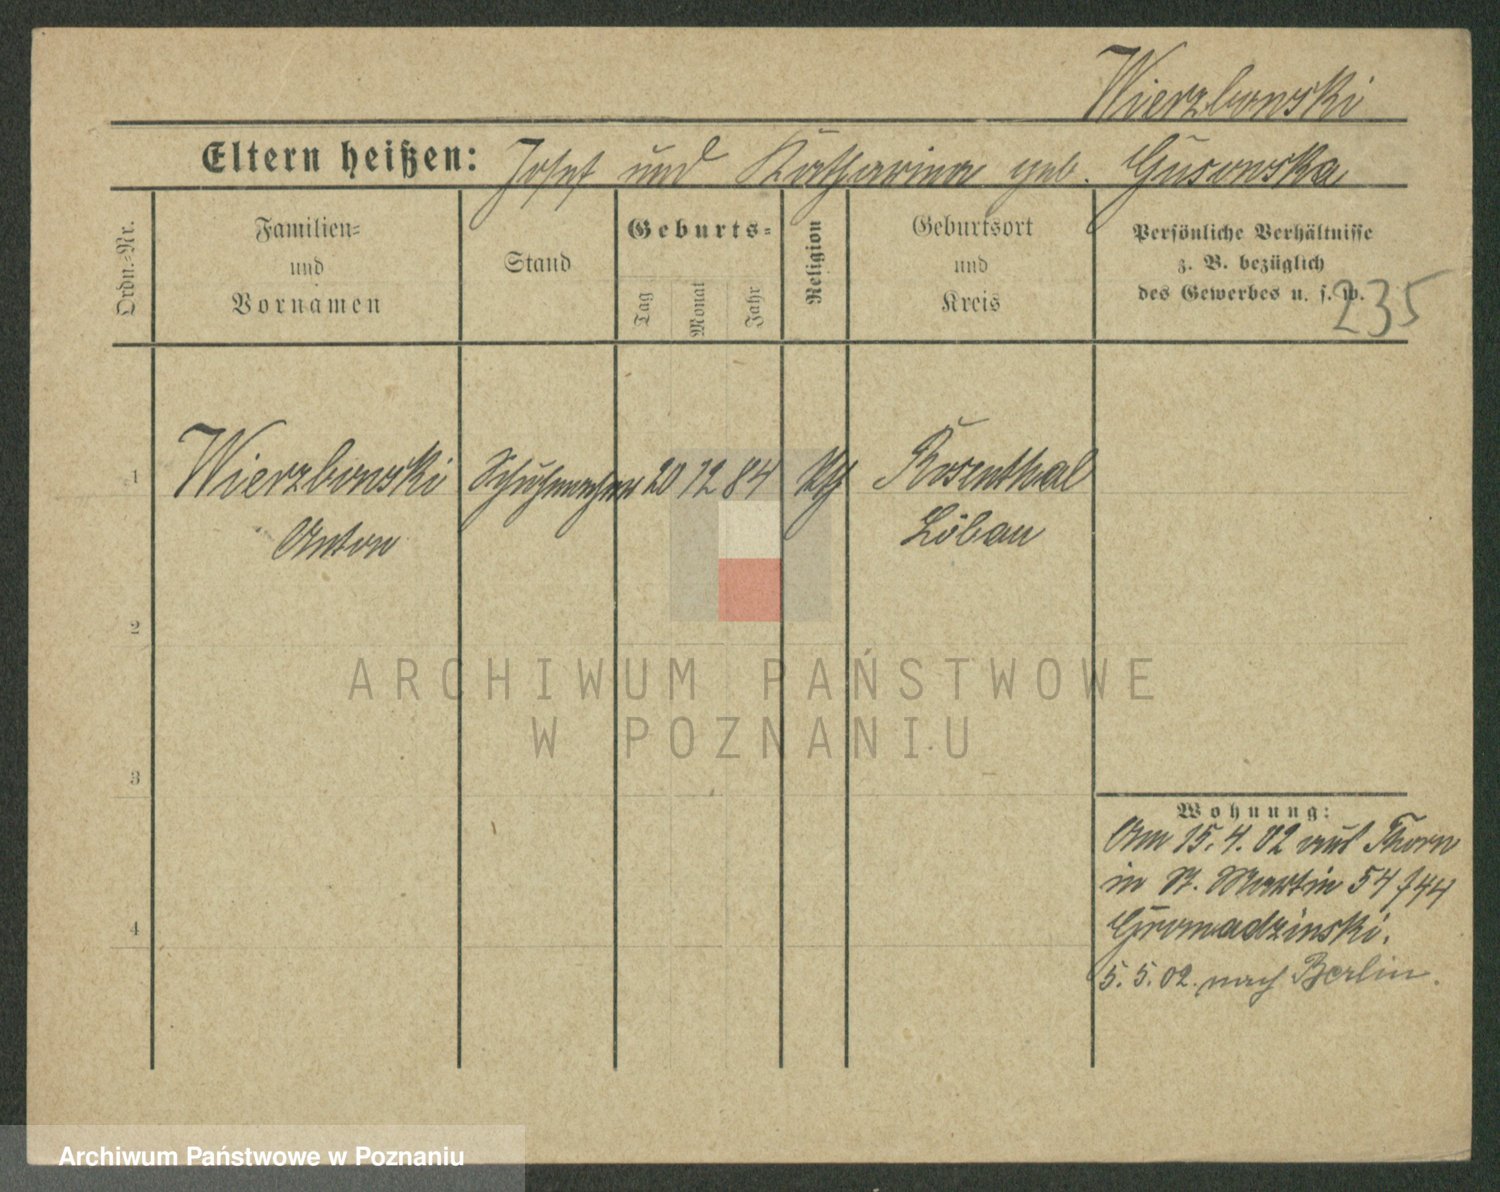 Wierzbowski
Eltern heißen: Josef und Katharina geb. Gusowska
Ordn.-Nr.
Familien-
und
Vornamen
Stand
Geburts-
Tag
Monat
Jahr
Religion
Geburtsort
und
Kreis
Persönliche Verhältnisse
z. B. bezüglich
des Gewerbes u. s. w.
235
1 Wierzbowski Schuhmacher 20 12 84 kth Rosenthal
Anton Löbau
2
3
4
Wohnung:
Am 15.4.02 aus Thorn
in St. Martin 54/44
Gromadzinski.
5.5.02. nach Berlin.
ARCHIWUM PAŃSTWOWE
W POZNANIU
Archiwum Państwowe w Poznaniu